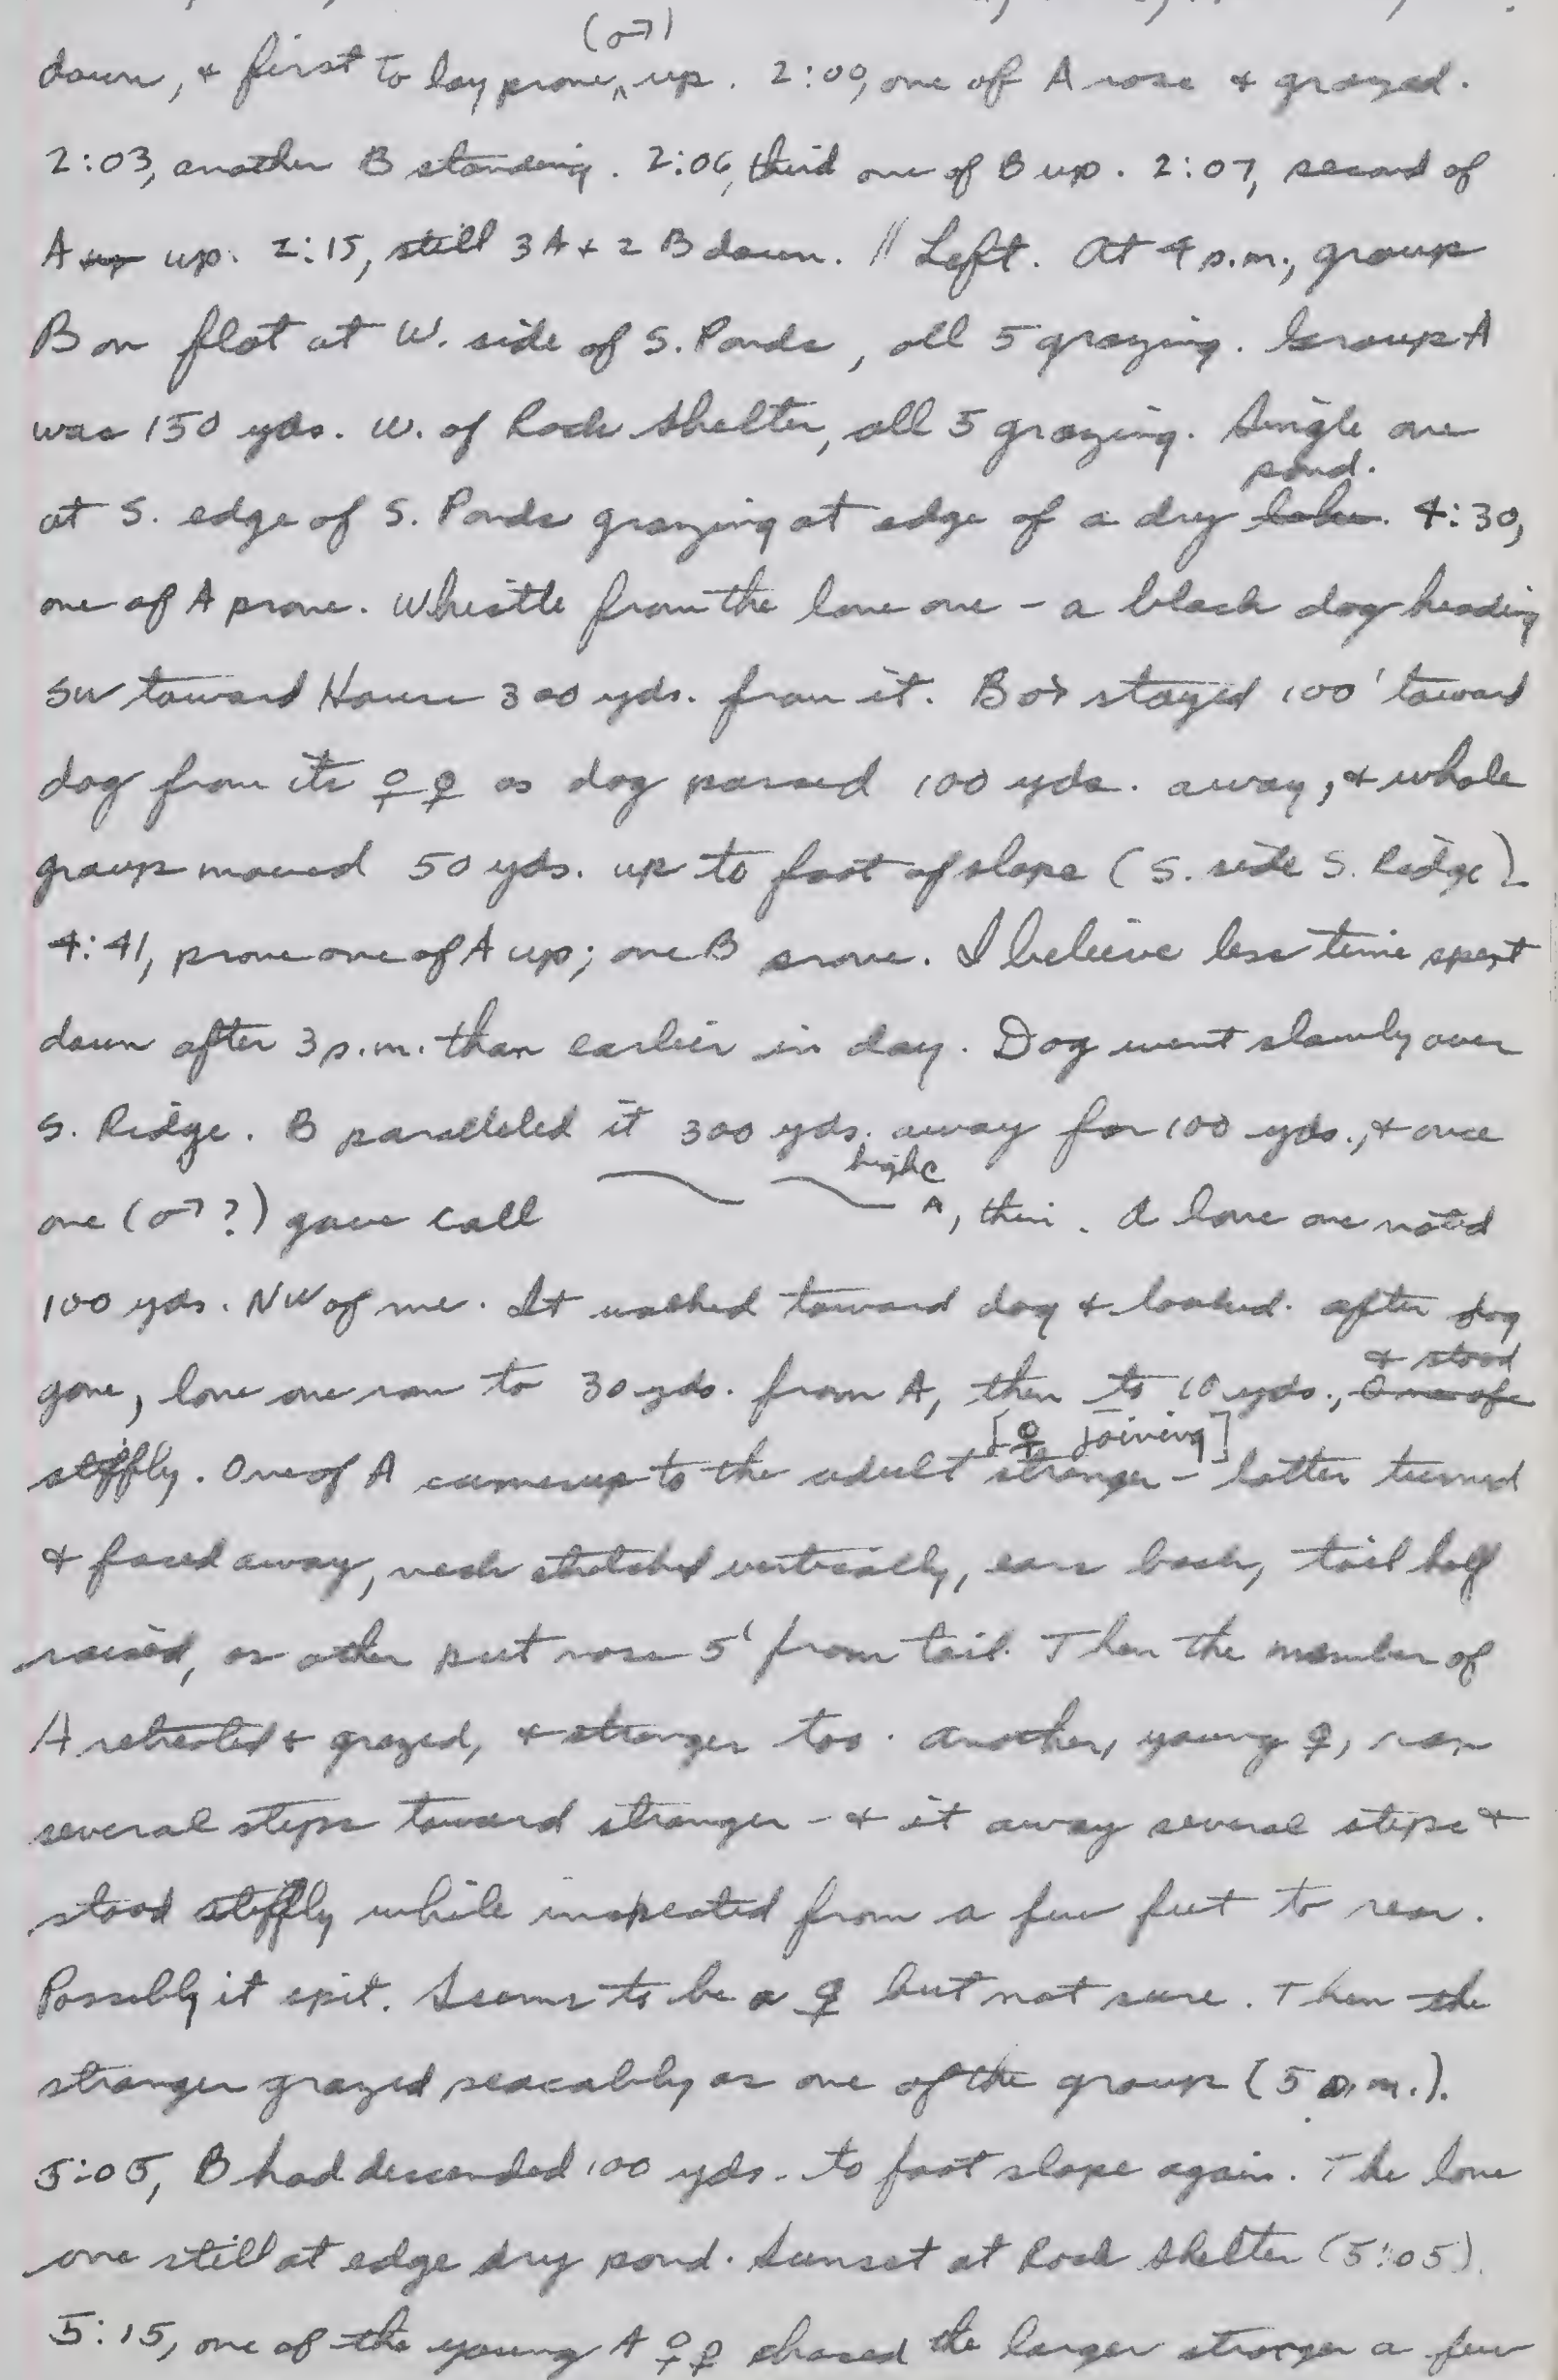 (♂)
down, & first to lay prone ^ up. 2:00, one of A rose & grazed.
2:03, another B standing. 2:06, third one of B up. 2:07, second of
A up up. 2:15, still 3 A + 2 B down. // Left. At 4 p.m., group
B on flat at W. side of S. Ponds, all 5 grazing. Group A
was 150 yds. W. of Rock Shelter, all 5 grazing. Single one
pond.
at S. edge of S. Ponds grazing at edge of a dry lake. 4:30,
one of A prone. Whistle from the lone one - a black dog heading
SW toward House 300 yds. from it. B ♂ stayed 100' toward
dog from its ♀♀ as dog passed 100 yds. away, & whole
group moved 50 yds. up to foot of slope (S. side S. Ridge).
4:41, prone one of A up; one B prone. I believe less time spent
down after 3 p.m. than earlier in day. Dog went slowly over
S. Ridge. B paralleled it 300 yds. away for 100 yds., & once
high
one (♂?) gave call ^, thin. A lone one noted
100 yds. NW of me. It walked toward dog & looked. After dog
& stood
gone, lone one ran to 30 yds. from A, then to 10 yds., One of
[♀ joining]
stiffly. One of A came up to the adult stranger - latter turned
& faced away, neck stretched vertically, ears back, tail half
raised, as other put nose 5' from tail. Then the member of
A retreated & grazed, & stranger too. Another, young ♀, ran
several steps toward stranger - & it away several steps &
stood stiffly while inspected from a few feet to rear.
Possibly it spit. Seems to be a ♀ but not sure. Then the
stranger grazed peacably as one of the group (5 p.m.).
5:05, B had descended 100 yds. to foot slope again. The lone
one still at edge dry pond. Sunset at Rock Shelter (5:05).
5:15, one of the young A ♀♀ chased the larger stranger a few